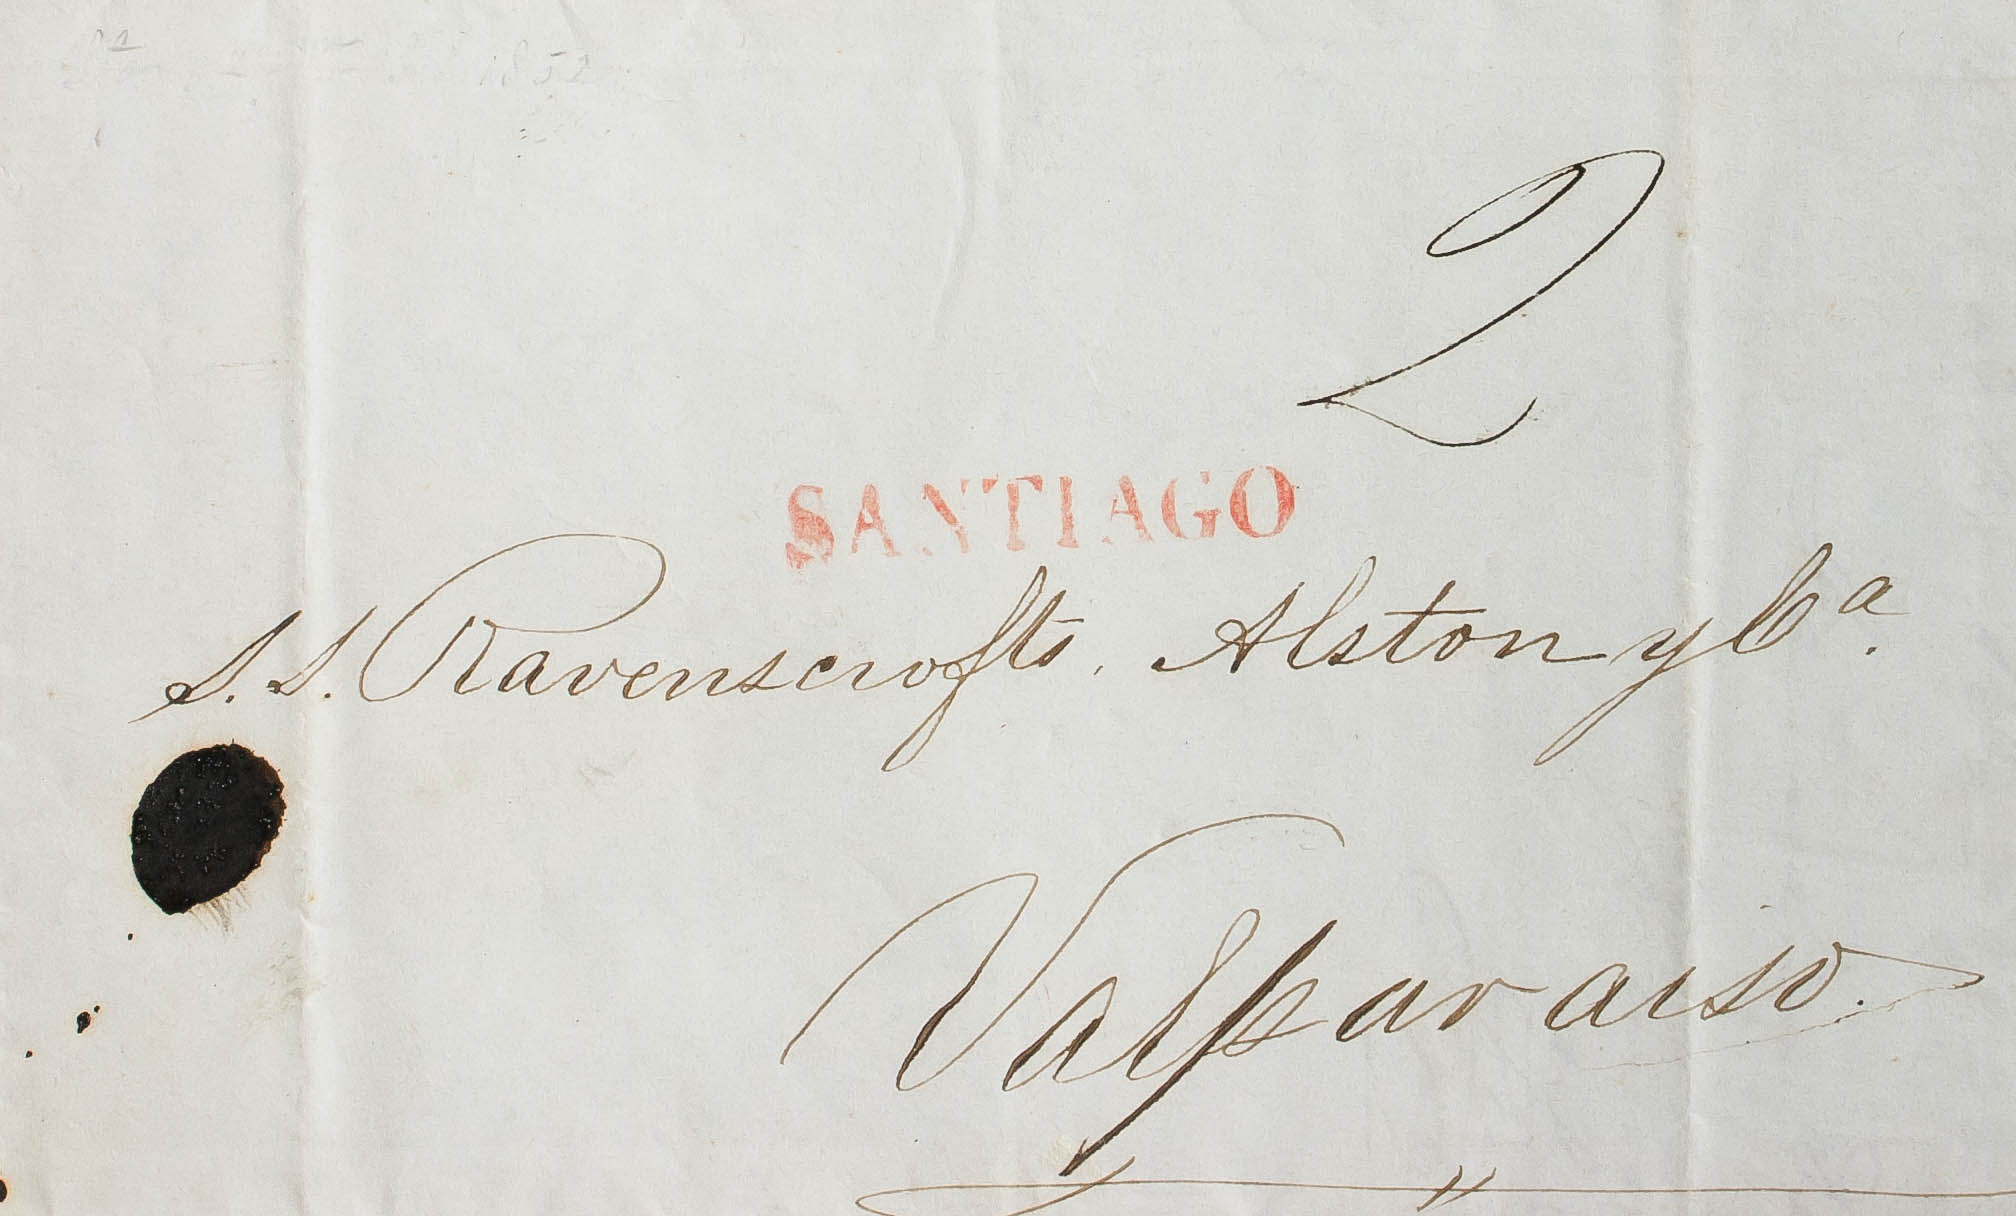 1852
2
SANTIAGO
S.S. Ravenscrofts, Alston y Cª.
Valparaiso.